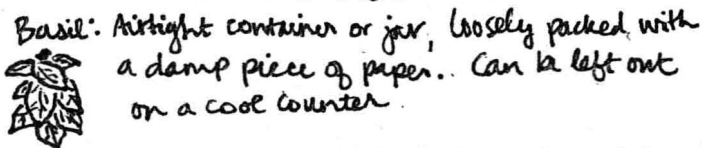 Basil: Airtight container or jar, loosely packed with
a damp piece of paper.. Can be left out
on a cool counter.